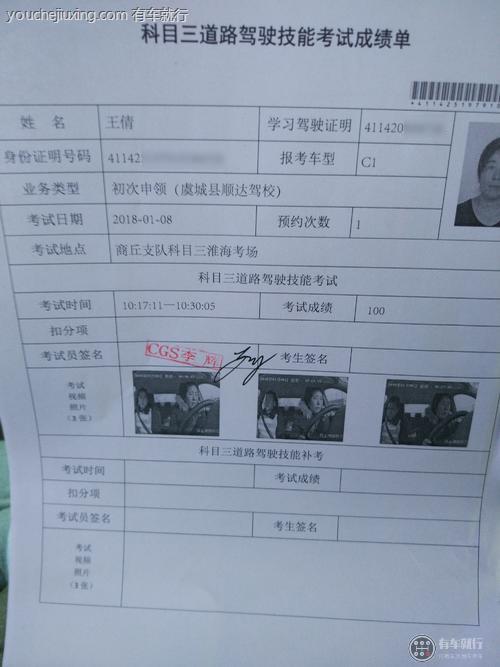 youchejiuxing.com 有车就行
科目三道路驾驶技能考试成绩单
姓 名 王倩 学习驾驶证明 411420
身份证明号码 41142 报考车型 C1
业务类型 初次申领（虞城县顺达驾校）
考试日期 2018-01-08 预约次数 1
考试地点 商丘支队科目三淮海考场
科目三道路驾驶技能考试
考试时间 10:17:11—10:30:05 考试成绩 100
扣分项
考试员签名 CGS李 考生签名
考试
视频
照片
（3张）
科目三道路驾驶技能补考
考试时间 考试成绩
扣分项
考试员签名 考生签名
考试
视频
照片
（3张）
有车就行